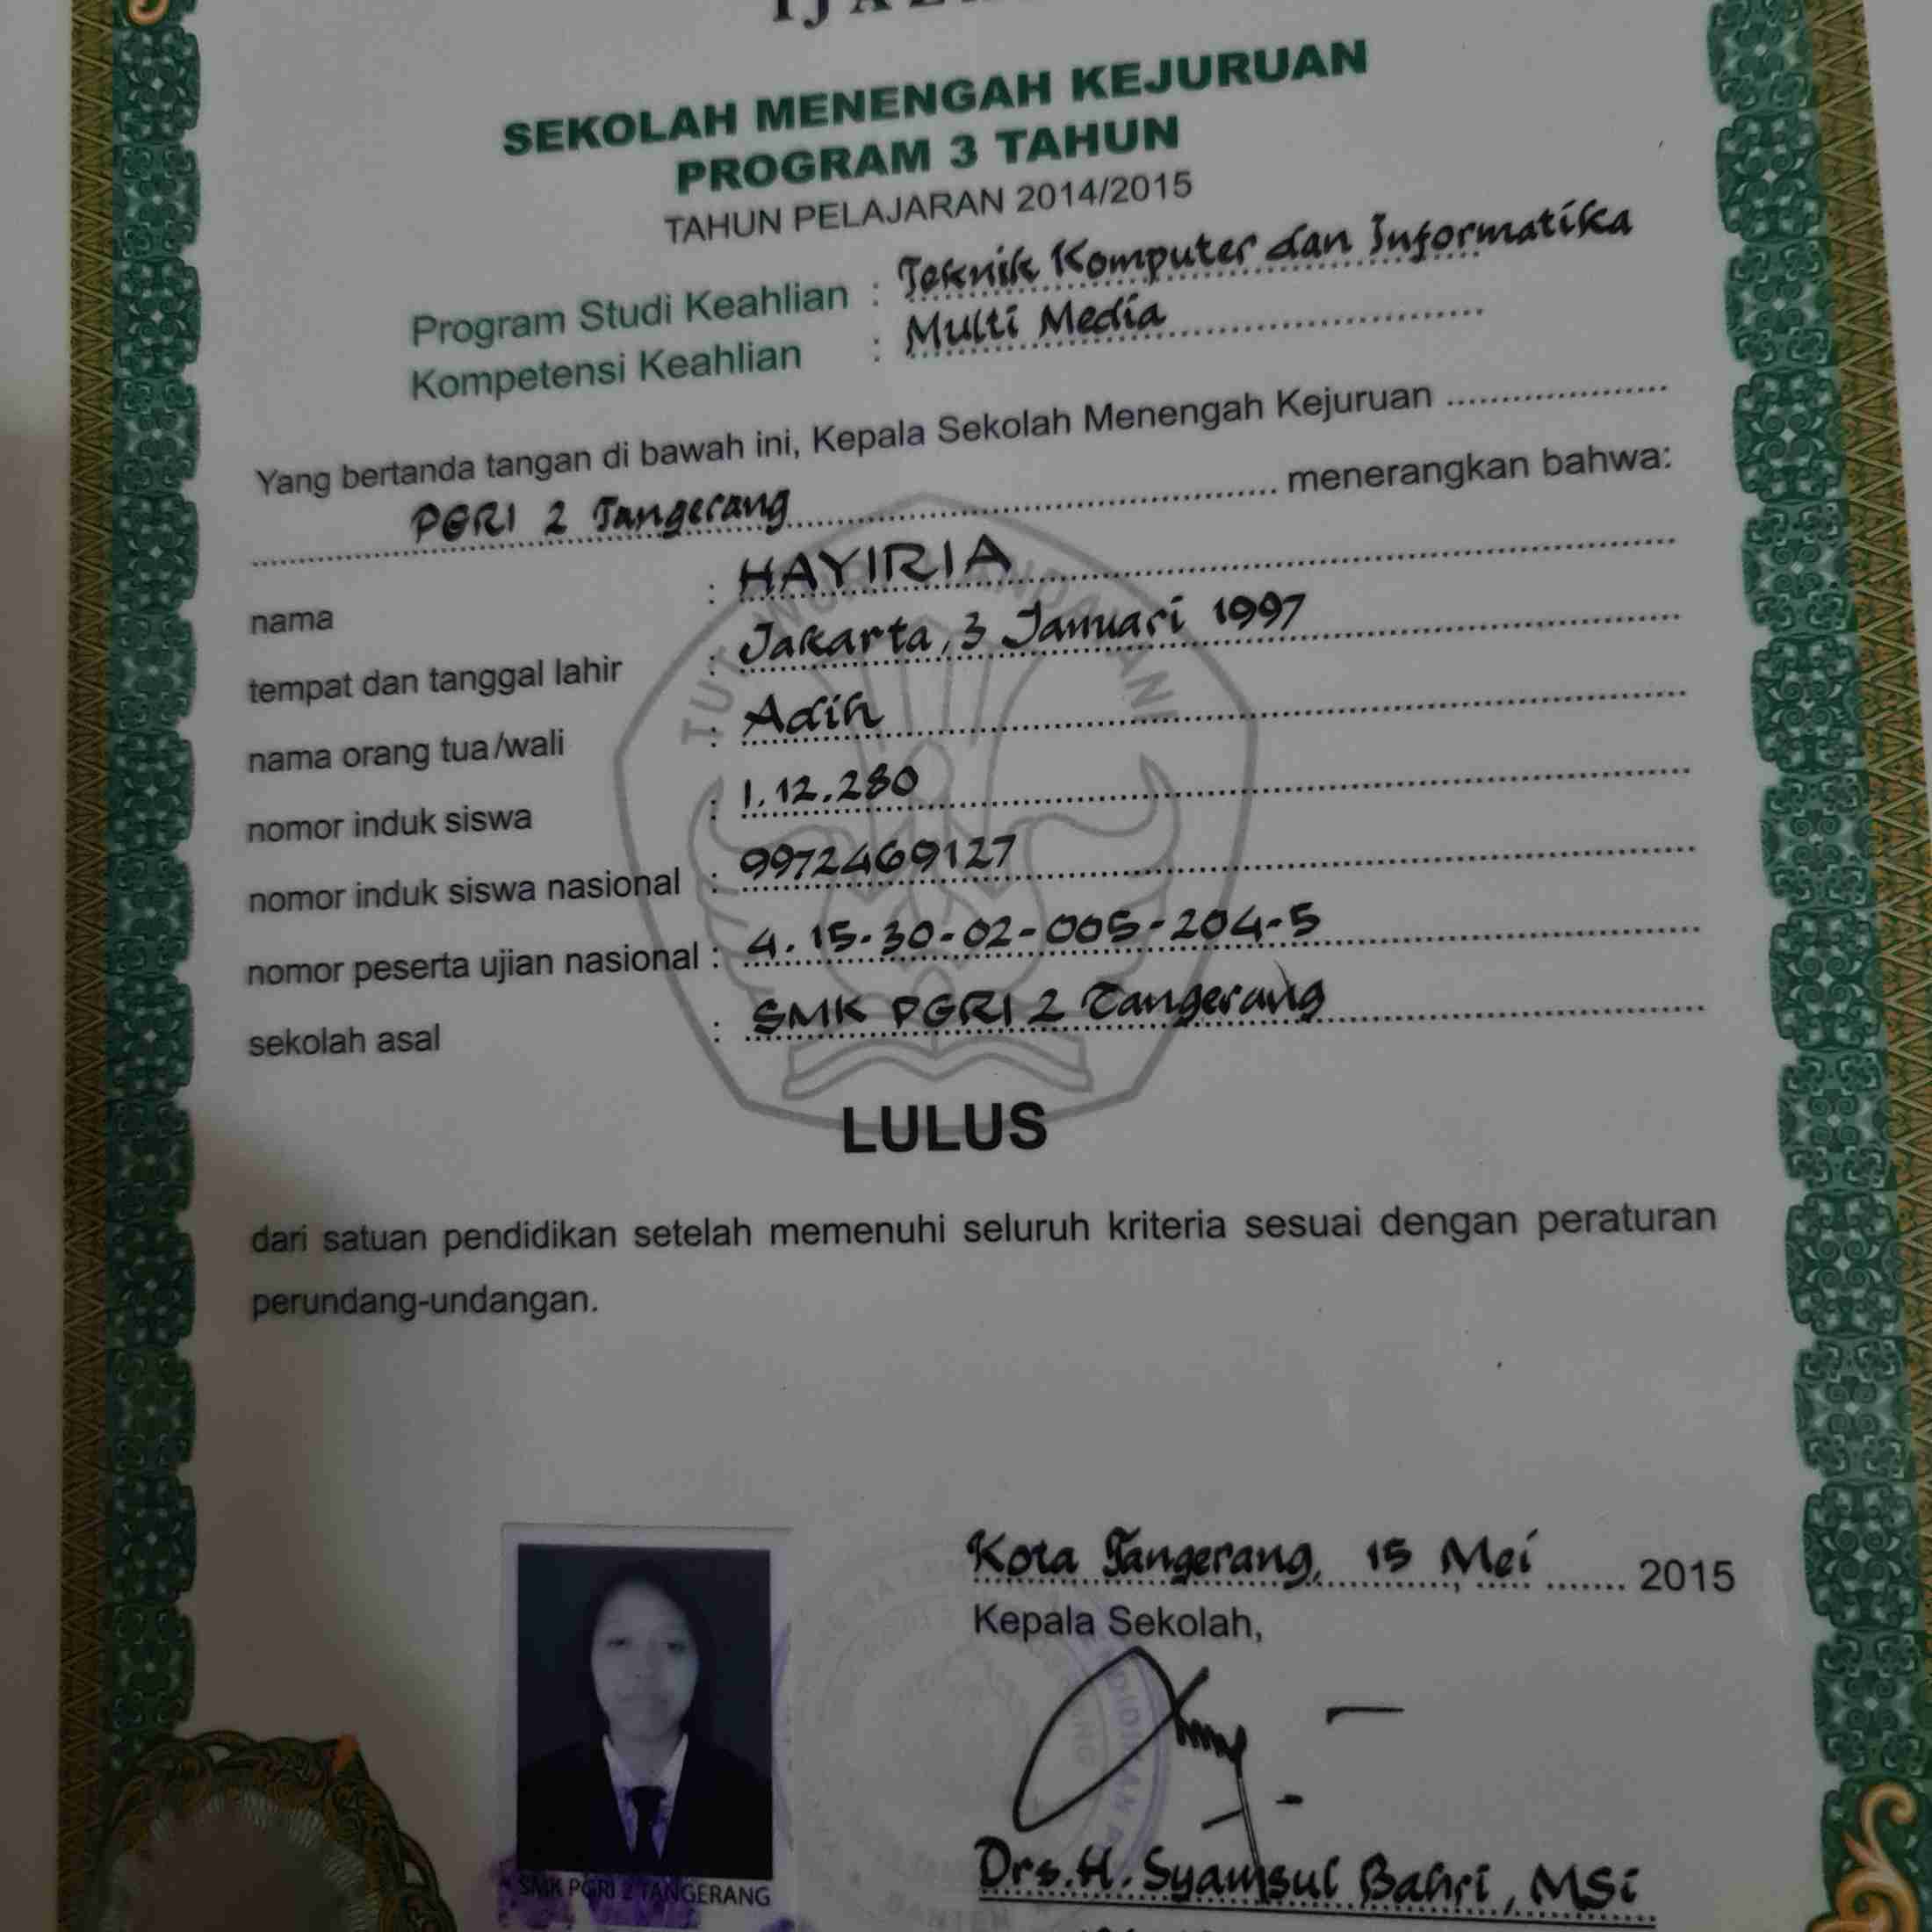 SEKOLAH MENENGAH KEJURUAN
PROGRAM 3 TAHUN
TAHUN PELAJARAN 2014/2015
Program Studi Keahlian : Teknik Komputer dan Informatika
Kompetensi Keahlian : Multi Media
Yang bertanda tangan di bawah ini, Kepala Sekolah Menengah Kejuruan
PGRI 2 Tangerang menerangkan bahwa:
nama : HAYIRIA
tempat dan tanggal lahir : Jakarta, 3 Januari 1997
nama orang tua/wali : Adih
nomor induk siswa : 1.12.280
nomor induk siswa nasional : 9972469127
nomor peserta ujian nasional : 4-15-30-02-005-204-5
sekolah asal : SMK PGRI 2 Tangerang
LULUS
dari satuan pendidikan setelah memenuhi seluruh kriteria sesuai dengan peraturan
perundang-undangan.
Kota Tangerang, 15 Mei 2015
Kepala Sekolah,
Drs. H. Syamsul Bahri, MSi
SMK PGRI 2 TANGERANG